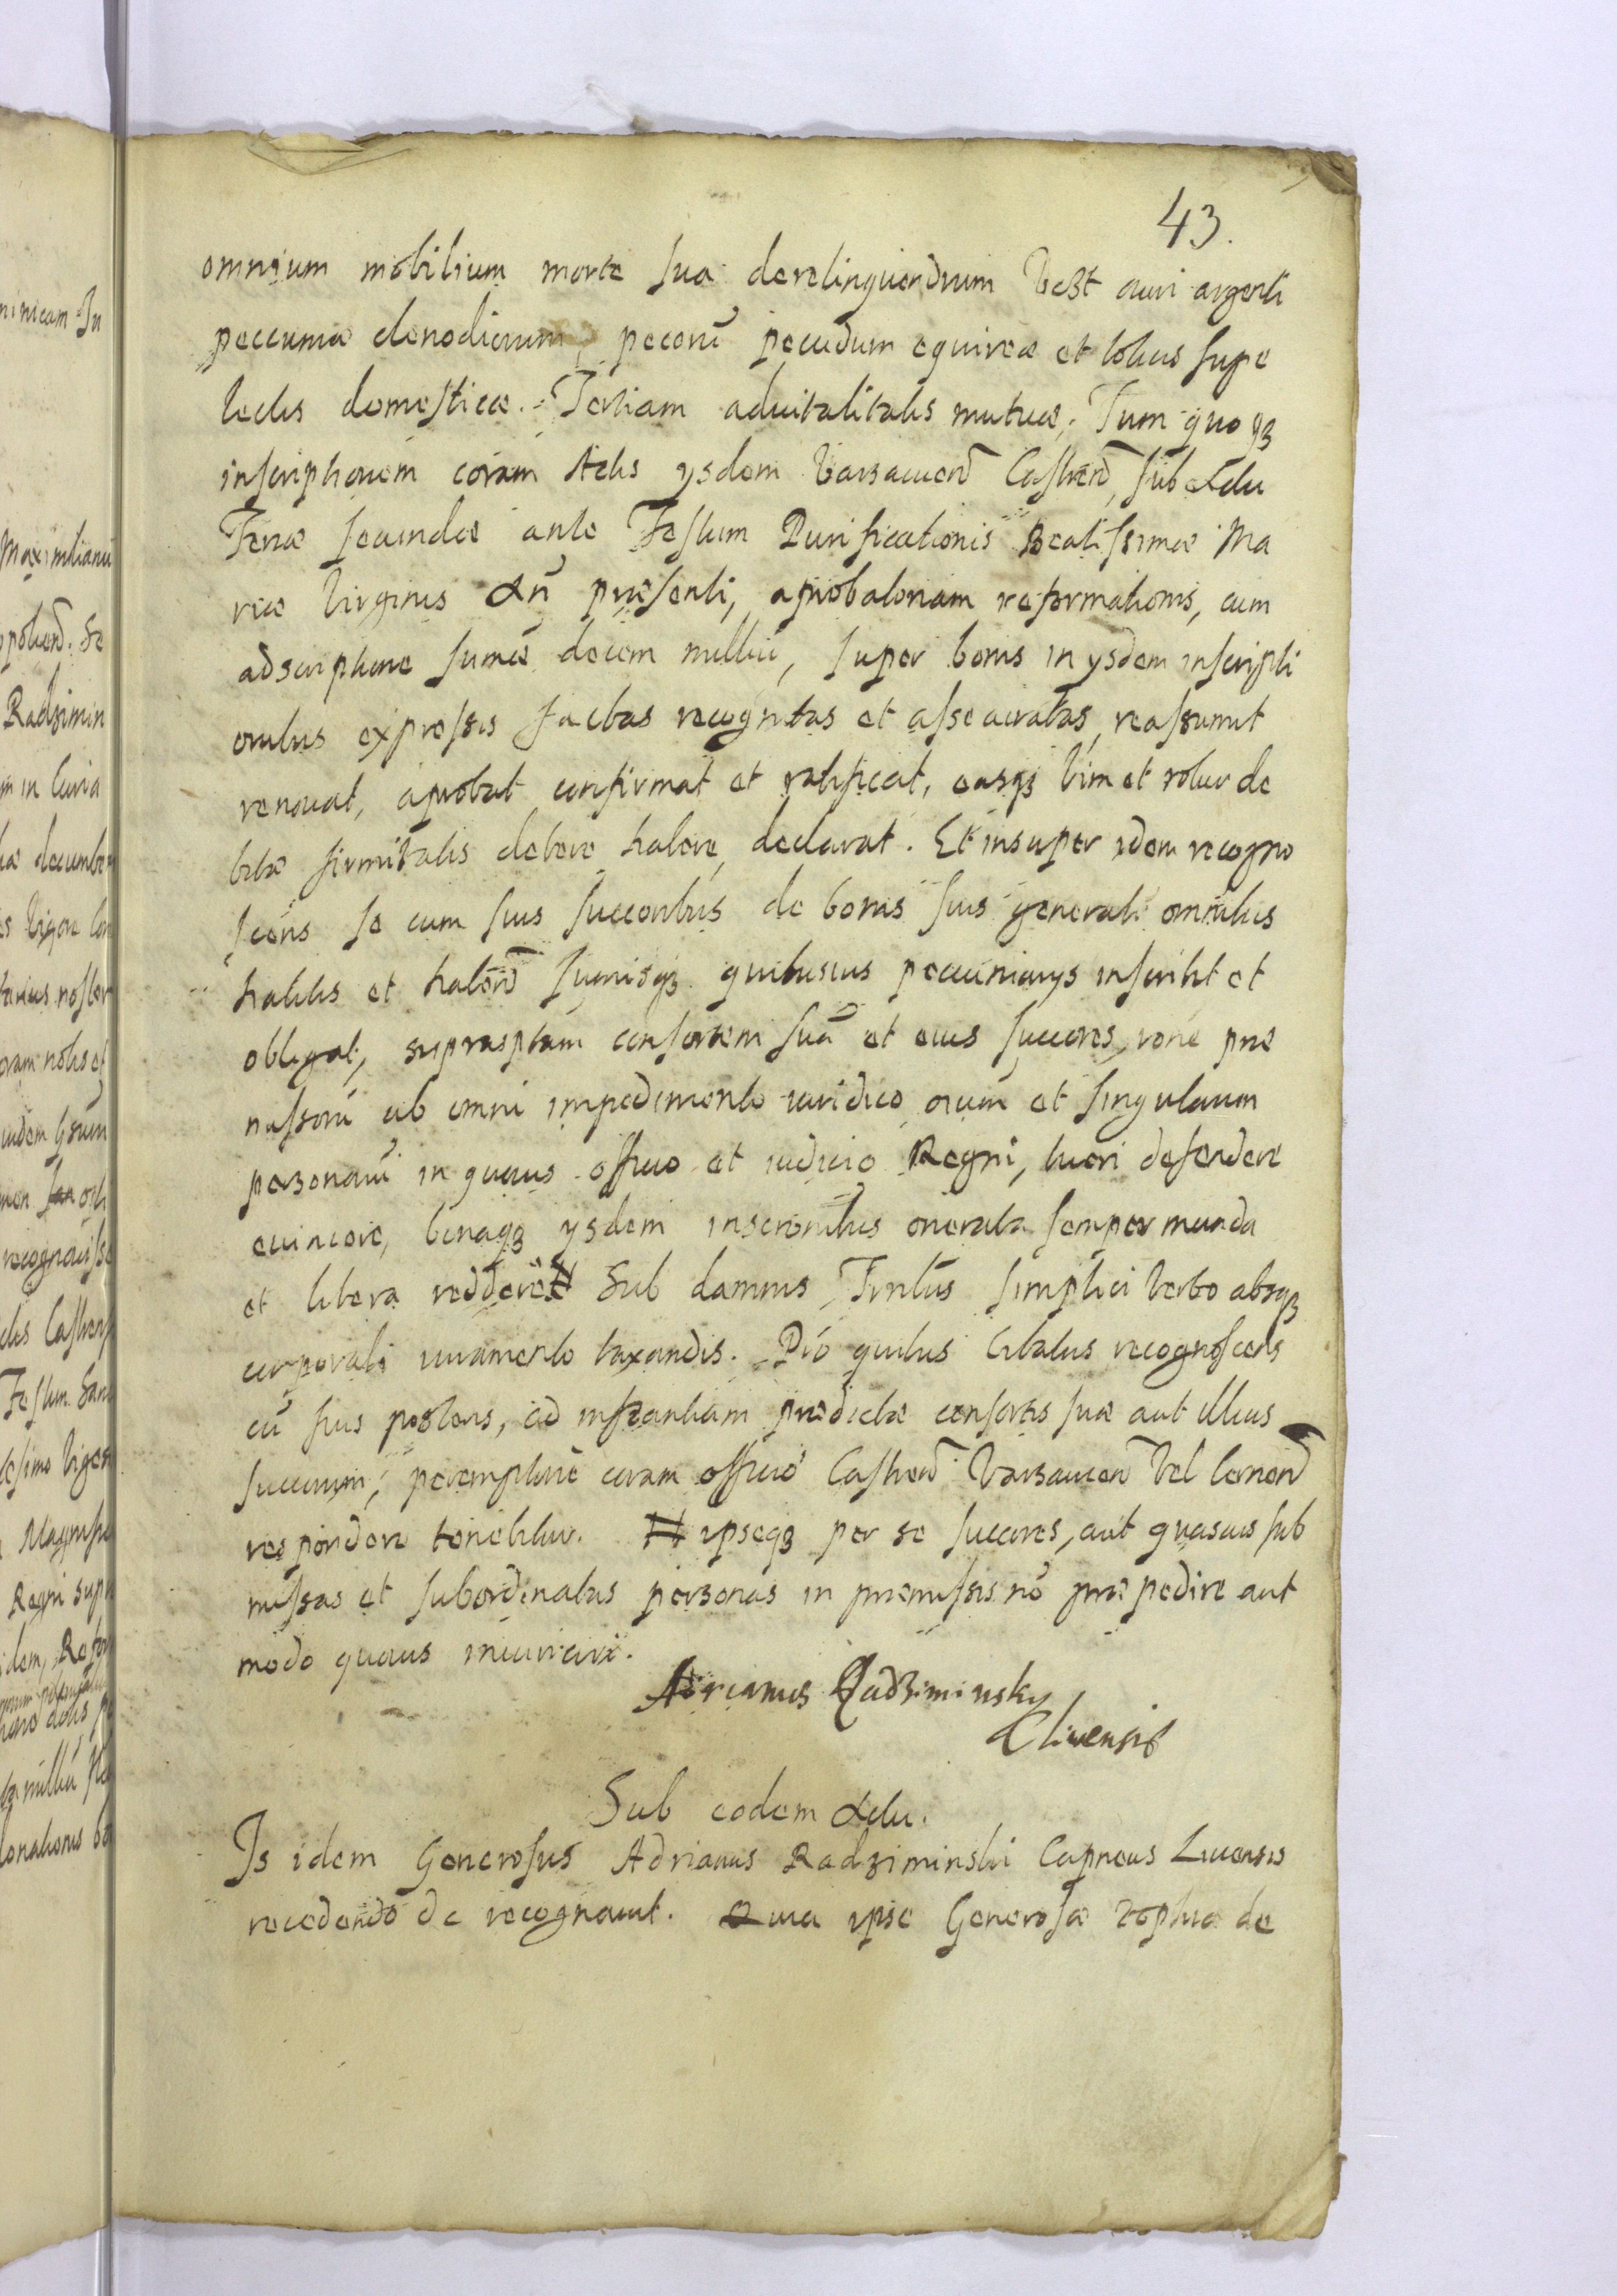 43.
omnium mobilium morte sua derelinquendrum vczt auri argenti
peccuniæ clenodiorum, pecorū pecudum equireæ et totius supe
lectis domesticæ. Tertiam advitalitatis mutuæ. Tum quoqз
inscriptionem coram Actis ysdem Varsavien̄ Castren̄, sub Actu
Feriæ secundæ ante Festum Purificationis Beatissimæ Ma
riæ Virginis An̄ præsenti, aprobatoriam reformationis, cum
adscriptione sum̄æ decem milliū, super bonis in ysdem inscripti
onibus expressis factas recognitas et asseacuratas, reassumit
renouat, aprobat confirmat et ratificat, easqз vim et robur de
bitæ firmitatis debere habere, declarat. Et insuper idem recogno
scens se cum suis succoribus de bonis suis generalr omnibus
habitis et haben̄ sum̄isqз quibusuis pecuniarys inscribit et
obligat, suprasptam consortem suā et eius succores, rone præ
missorū ab omni impedimento iuridico oium et singularum
personarū in quouis officio et iudicio Regni, tueri defendere
euincere, bonaqз ysdem inscronibus onerata semper munda
et libera reddere Sub damnis Trnlūs simplici verbo absqз
corporali iuramento taxandis. Pro quibus citatus recognoscens
cū suis posteris, ad instantiam prædictæ consortis suæ aut illius
succorum, peremptorie coram officio Castren̄ Varsauien̄ vel Cernen̄
respondere tenebitur. ipseqз per se succores, aut quasuis sub
missas et subordinatas personas in præmissis nō præpedire aut
modo quouis iniuriari.
Adrianus Radziminsky
C Liuensis
Sub eodem Actu.
Is idem Generosus Adrianus Radziminski Capneus Liuensis
recedendo de recognouit. Quia ipse Generosæ Zophiæ de